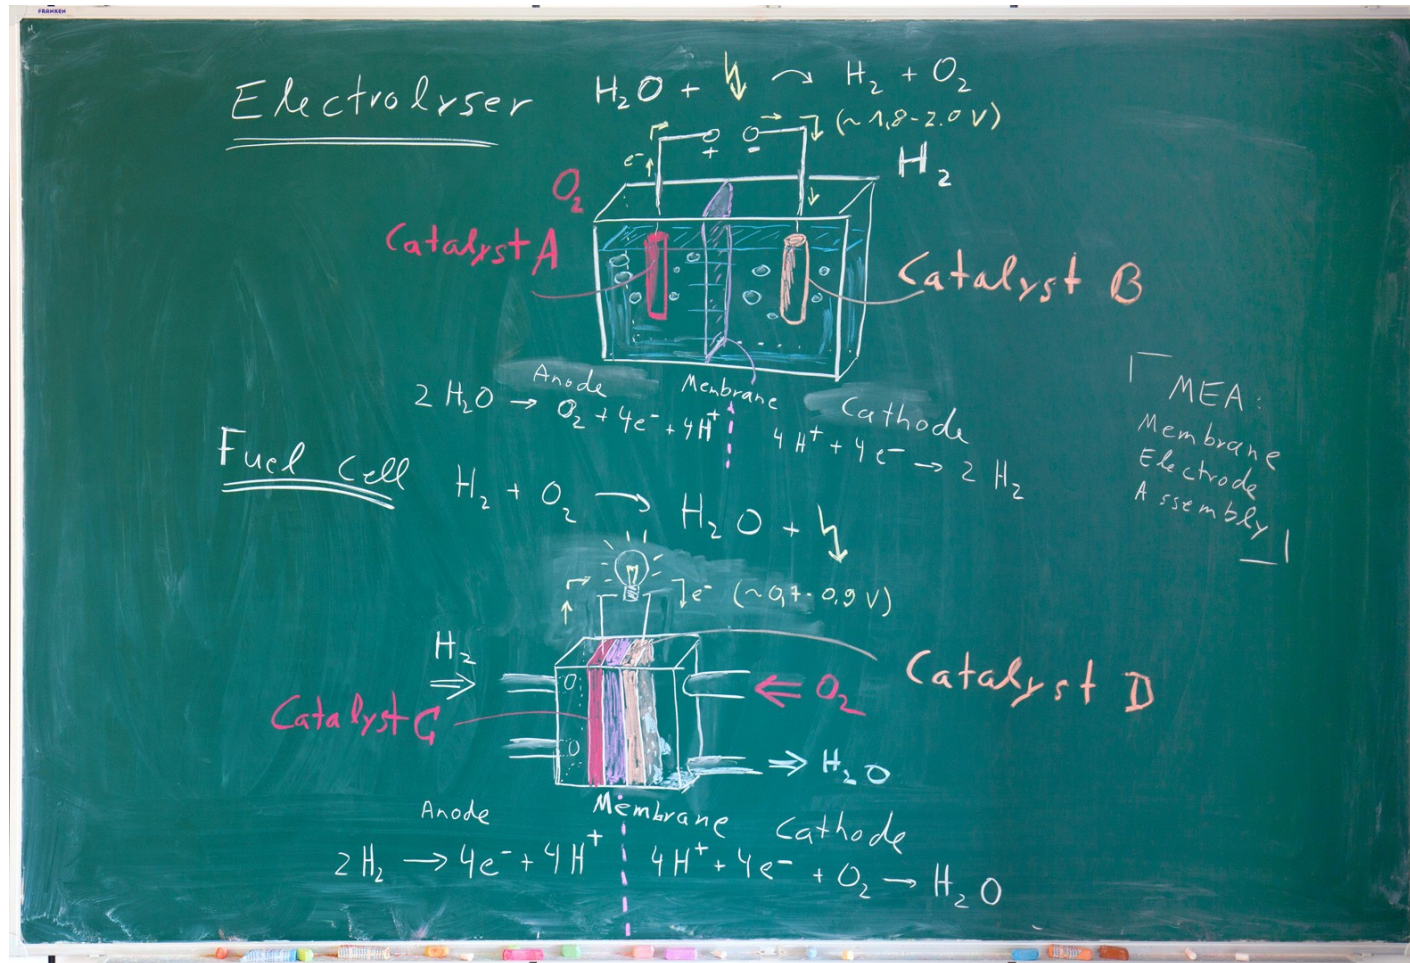 FRANKEN
Electrolyser
H₂O + → H₂ + O₂
(~1,8-2.0 V)
e⁻
+ -
O₂
H₂
Catalyst A
Catalyst B
Anode
Membrane
Cathode
2 H₂O → O₂ + 4e⁻ + 4H⁺
4 H⁺ + 4 e⁻ → 2 H₂
MEA:
Membrane
Electrode
Assembly
Fuel Cell
H₂ + O₂ → H₂O +
e⁻ (~0,7-0,9 V)
H₂
O₂
Catalyst C
Catalyst D
H₂O
Anode
Membrane
Cathode
2 H₂ → 4e⁻ + 4H⁺
4H⁺ + 4e⁻ + O₂ → H₂O